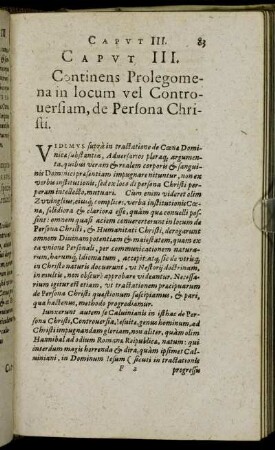 CAPVT III. 83
CAPVT III.
Continens Prolegome-
na in locum vel Contro-
uersiam, de Persona Chri-
sti.
VIDEMVS suprà in tractatione de Cœna Domi-
nica substantia, Adversarios pleraq; argumen-
ta, quibus veram & realem corporis & sangui-
nis Dominici præsentiam impugnare nituntur, non ex
verbis institutionis, sed ex loco de persona Christi per-
peram intellecto, mutuari. Cum enim videret olim
Zvvinglius, eiusq; complices, verba institutionis Cœ-
næ, solidiora & clariora esse, quàm quæ convelli pos-
sent: omnem quasi aciem converterunt in locum de
Persona Christi, & Humanitati Christi, derogarunt
omnem Divinam potentiam & maiestatem, quam ex
de unione Personali, per communicationem natura-
rum, harumq́; Idiomatum, accepit: atq́; sic de vtriusq;
in Christo naturis docuerunt, vt Nestorij doctrinam,
in multis, non obscurè approbare videantur. Necessa-
rium igitur est etiam, vt tractationem præcipuarum
de Persona Christi quæstionum suscipiamus, & pari,
qua hactenus, methodo progrediamur.
Iunxerunt autem se Caluinianis in isthac de Per-
sona Christi, Controuersia, Iesuitæ, genus hominum, ad
Christi impugnandam gloriam, non aliter, quàm olim
Hannibal ad odium Romanæ Reipublicæ, natum: qui
interdum magis horrenda & dira, quàm ipsimet Cal-
uiniani, in Dominum Iesum (sicuti in tractationis
F 2 progressu